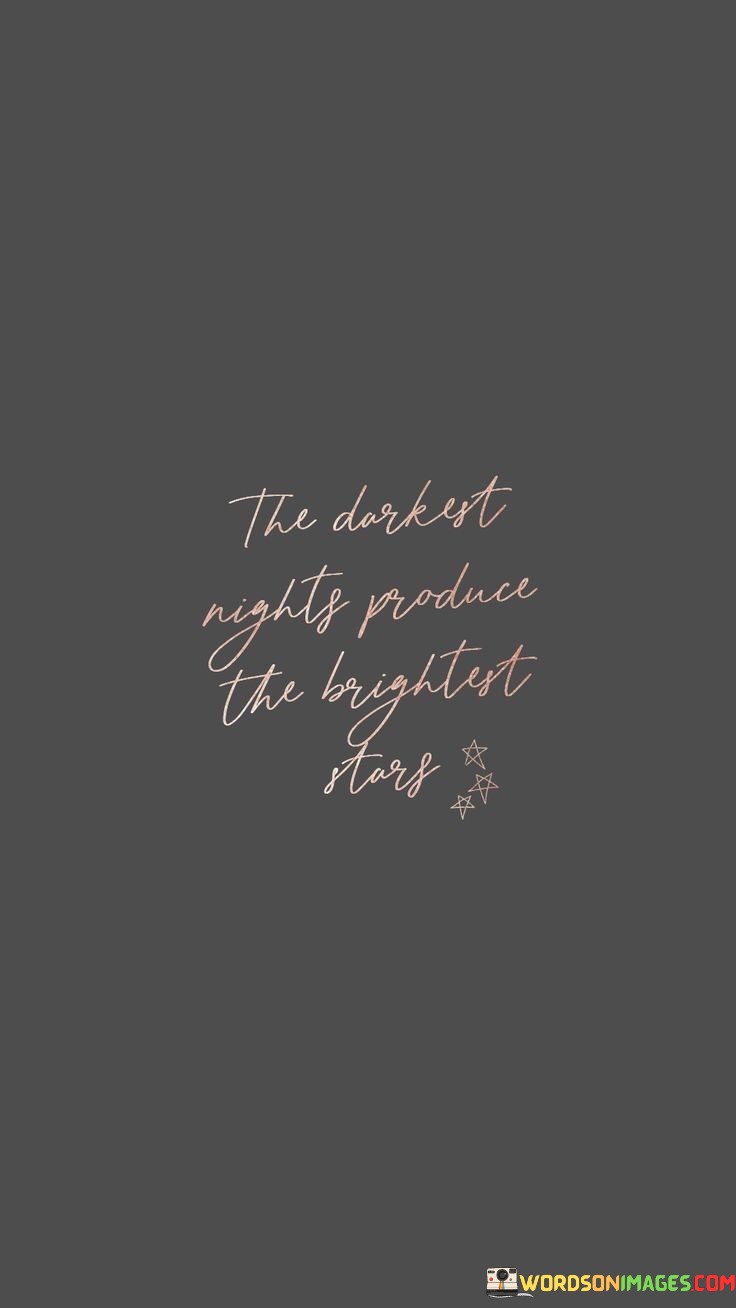 The darkest
nights produce
the brightest
stars
WORDSONIMAGES.COM